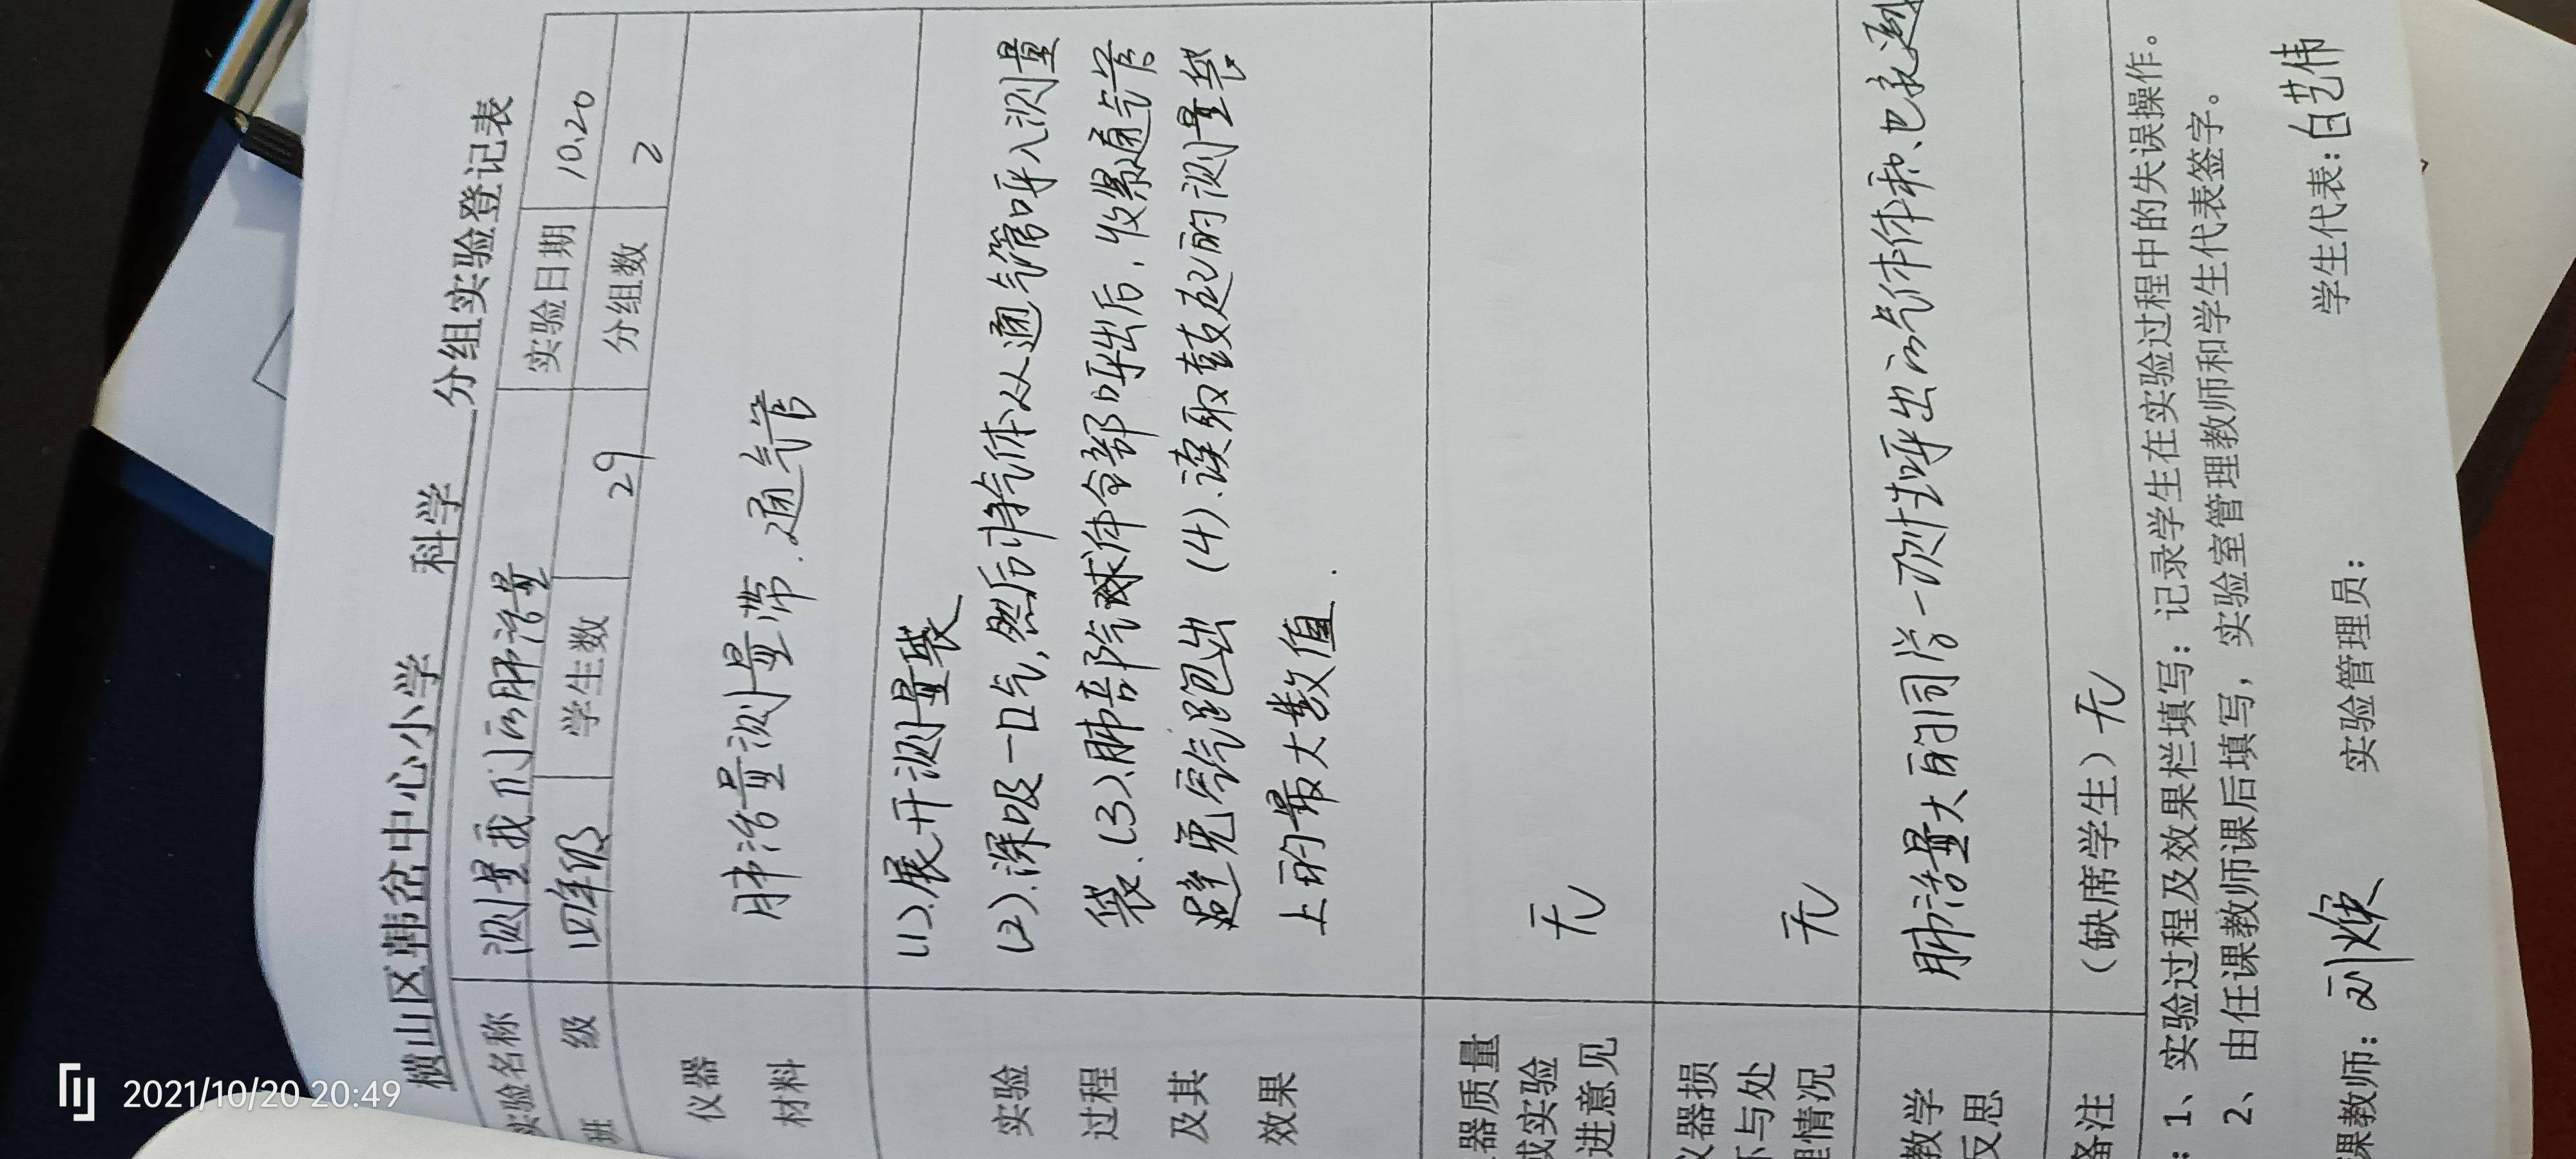 横山区韩岔中心小学 科学 分组实验登记表
实验名称 测量我们的肺活量 实验日期 10.20
班 级 四年级 学生数 29 分组数 2
仪器 材料 肺活量测量带.通气管
实验 过程 及其 效果
(1).展开测量袋
(2).深吸一口气,然后将气体从通气管呼入测量
袋.(3).肺部气球体全部呼出后,收紧通气管
避免空气跑出 (4).读取鼓起的测量袋
上的最大数值.
器质量 或实验 进意见 无
仪器损 坏与处 理情况 无
教学 反思 肺活量大的同学一次性呼出的气体体积也
备注 (缺席学生) 无
: 1、实验过程及效果栏填写:记录学生在实验过程中的失误操作。
2、由任课教师课后填写,实验室管理教师和学生代表签字。
课教师: 刘 实验管理员: 学生代表: 白艺伟
2021/10/20 20:49